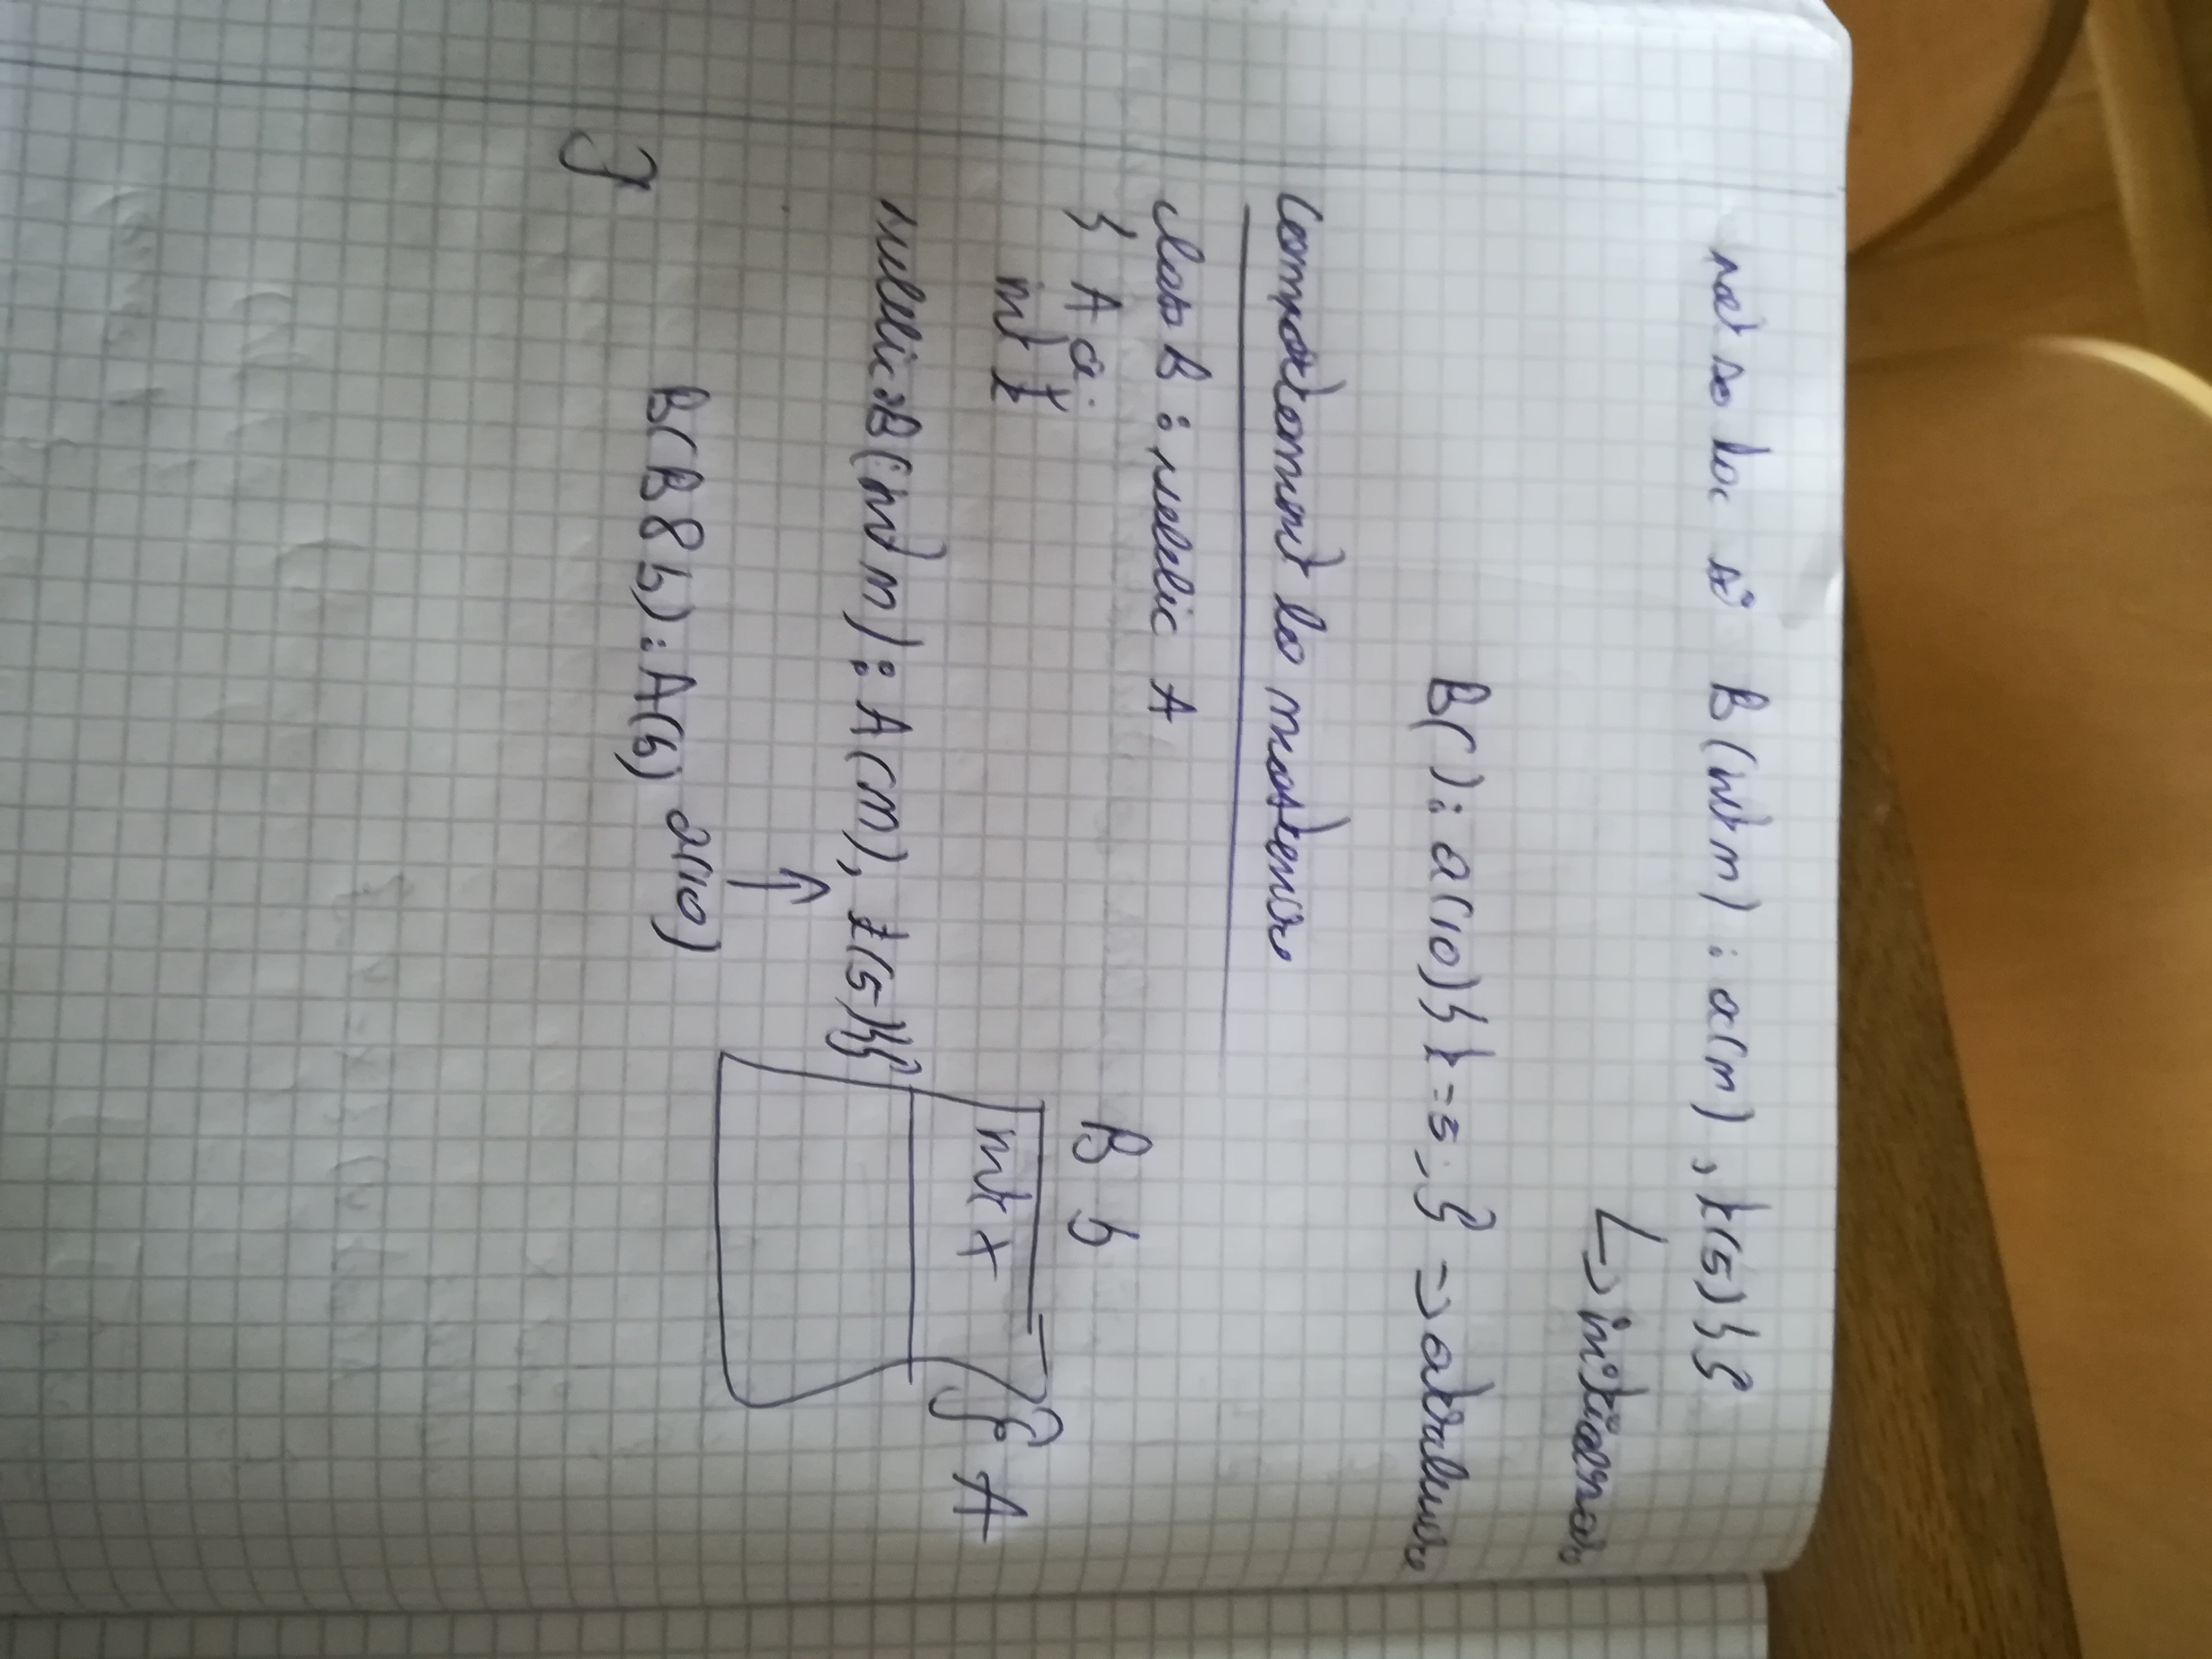 pot so fac si B(int m) : a(m), t(5){}
↳ initializare
B() : a(10){ t=5; } => atribuire
Comportament la mostenire
class B : public A
{ A a;
int t
public: B(int m) : A(m), t(5){}
B(B & b) : A(b) a(10)
}
B b
int x
A